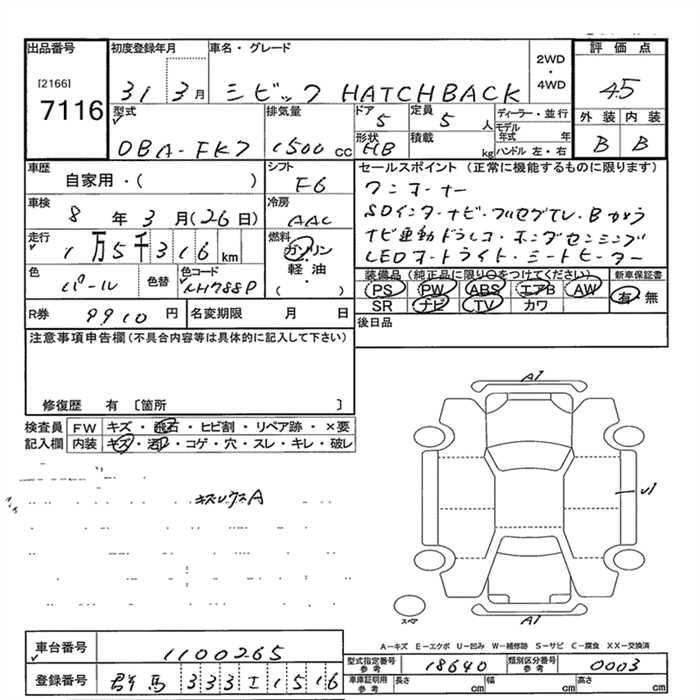 出品番号 初度登録年月 車名・グレード 2WD・4WD 評価点
[2166]
7116
31 3月 シビック HATCHBACK 4.5
型式 排気量 ドア 定員 ディーラー・並行 外装 内装
DBA-FK7 1500 cc 5 5人 モデル年式 年 B B
形状 HB 積載 kg ハンドル 左・右
車歴 自家用・( ) シフト F6
セールスポイント (正常に機能するものに限ります)
ワンオーナー
SDインターナビ・フルセグTV・Bカメラ
ナビ連動ドラレコ・ホンダセンシング
LEDオートライト・シートヒーター
車検 8年 3月 (26日) 冷房 AAC
走行 1万5千316 km 燃料 ガソリン・軽油 ( )
色 パール 色替 色コード NH788P
装備品 (純正品に限り○をつけてください) 新車保証書
PS PW ABS エアB AW 有・無
SR ナビ TV カワ
R券 9910円 名変期限 月 日
後日品
注意事項申告欄 (不具合内容等は具体的に記入して下さい)
修復歴 有 〔箇所 〕
検査員記入欄 FW キズ・飛石・ヒビ割・リペア跡・×要
内装 キズ・汚れ・コゲ・穴・スレ・キレ・破レ
A1
U1
スペア
A1
A-キズ E-エクボ U-凹み W-補修跡 S-サビ C-腐食 XX-交換済
車台番号 1100265
型式指定番号 参考 18640 類別区分番号 参考 0003
登録番号 群馬 333 1516
車庫証明用 参考 長さ cm 幅 cm 高さ cm